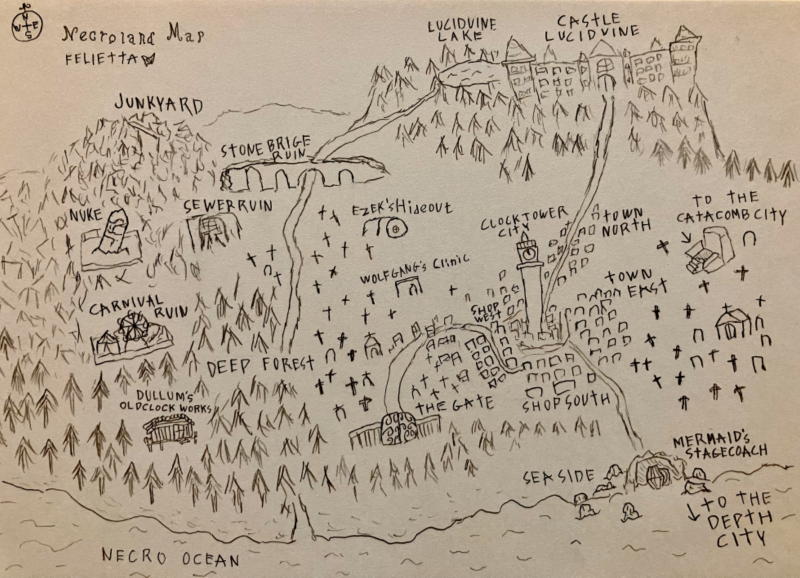 N
W E
S
Necroland Map
FELIETTA
LUCIDVINE
LAKE
CASTLE
LUCIDVINE
JUNKYARD
STONE BRIGE
RUIN
NUKE
SEWERRUIN
EZEK'S Hideout
CLOCKTOWER
CITY
TOWN
NORTH
TO THE
CATACOMB CITY
WOLFGANG'S CLiNiC
TOWN
EAST
SHOP
WEST
CARNIVAL
RUIN
DEEP FOREST
DULLUM'S
OLDCLOCK WORKS
THE GATE
SHOP SOUTH
MERMAID'S
STAGECOACH
SEASIDE
↓ TO THE
DEPTH
CITY
NECRO OCEAN